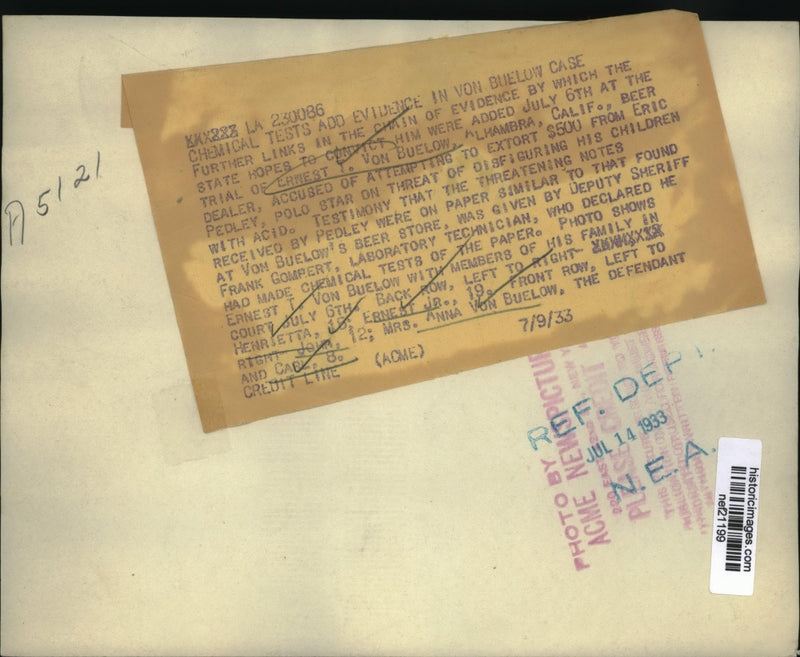 A 5121
LA 230086
CHEMICAL TESTS ADD EVIDENCE IN VON BUELOW CASE
FURTHER LINKS IN THE CHAIN OF EVIDENCE BY WHICH THE
STATE HOPES TO CONVICT HIM WERE ADDED JULY 6TH AT THE
TRIAL OF ERNEST T. VON BUELOW, ALHAMBRA, CALIF., BEER
DEALER, ACCUSED OF ATTEMPTING TO EXTORT $500 FROM ERIC
PEDLEY, POLO STAR ON THREAT OF DISFIGURING HIS CHILDREN
WITH ACID. TESTIMONY THAT THE THREATENING NOTES
RECEIVED BY PEDLEY WERE ON PAPER SIMILAR TO THAT FOUND
AT VON BUELOW'S BEER STORE, WAS GIVEN BY DEPUTY SHERIFF
FRANK GOMPERT, LABORATORY TECHNICIAN, WHO DECLARED HE
HAD MADE CHEMICAL TESTS OF THE PAPER. PHOTO SHOWS
ERNEST T. VON BUELOW WITH MEMBERS OF HIS FAMILY IN
COURT JULY 6TH. BACK ROW, LEFT TO RIGHT
HENRIETTA, 15; ERNEST JR., 19. FRONT ROW, LEFT TO
RIGHT JOHN, 12; MRS. ANNA VON BUELOW, THE DEFENDANT
AND CARL, 8.
CREDIT LINE (ACME) 7/9/33
PHOTO BY
ACME NEWSPICTURES
PLEASE CREDIT
REF. DEPT.
JUL 14 1933
N.E.A.
historicimages.com
nef21199